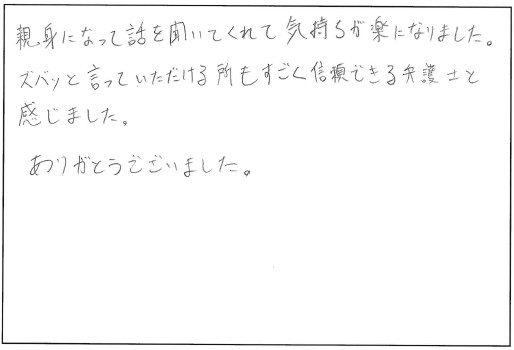 親身になって話を聞いてくれて気持ちが楽になりました。
ズバッと言っていただける所もすごく信頼できる弁護士と
感じました。
ありがとうございました。